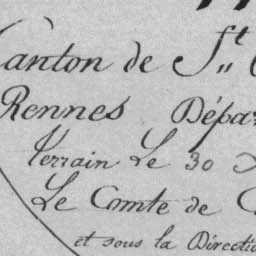 Canton de St
Rennes Dépar
Terrain Le 30
Le Comte de
et sous la Directi